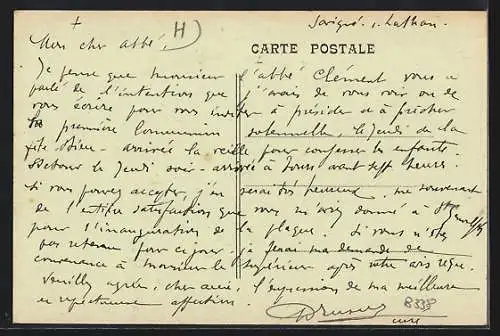 + H) Savigné s. Lathan
Mon cher abbé,
CARTE POSTALE
Je pense que monsieur l'abbé Clément vous a
parlé de l'intention que j'avais de vous voir ou de
vous écrire pour vous inviter à présider et à prêcher
la première Communion solennelle, le Jeudi de la
fête Dieu - arrivée la veille pour confesser les enfants.
Retour le Jeudi soir - arrivée à Tours avant sept heures.
Si vous pouvez accepter, j'en serai très heureux, me souvenant
de l'entière satisfaction que vous m'avez donné à
pour l'inauguration de la plaque. Si vous n'êtes
pas retenu pour ce jour, je ferai ma demande de
convenance à Monsieur le Supérieur après votre avis reçu.
Veuillez agréer, cher ami, l'expression de ma meilleure
et respectueuse affection.
8338
curé